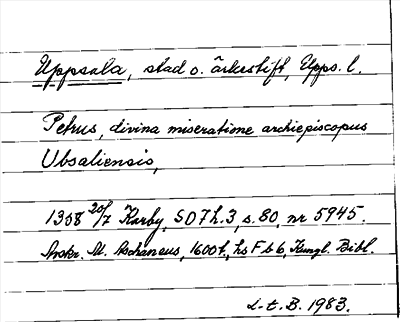 Uppsala, stad o. ärkestift, Upps. l.
Petrus, divina miseratione archiepiscopus
Ubsaliensis,
1338 20/7 Karby, SD Th. 3, s. 80, nr 5945.
Avskr. M. Aschaneus, 1600 t., hs F b 6, Kungl. Bibl.
L-t. B. 1983.